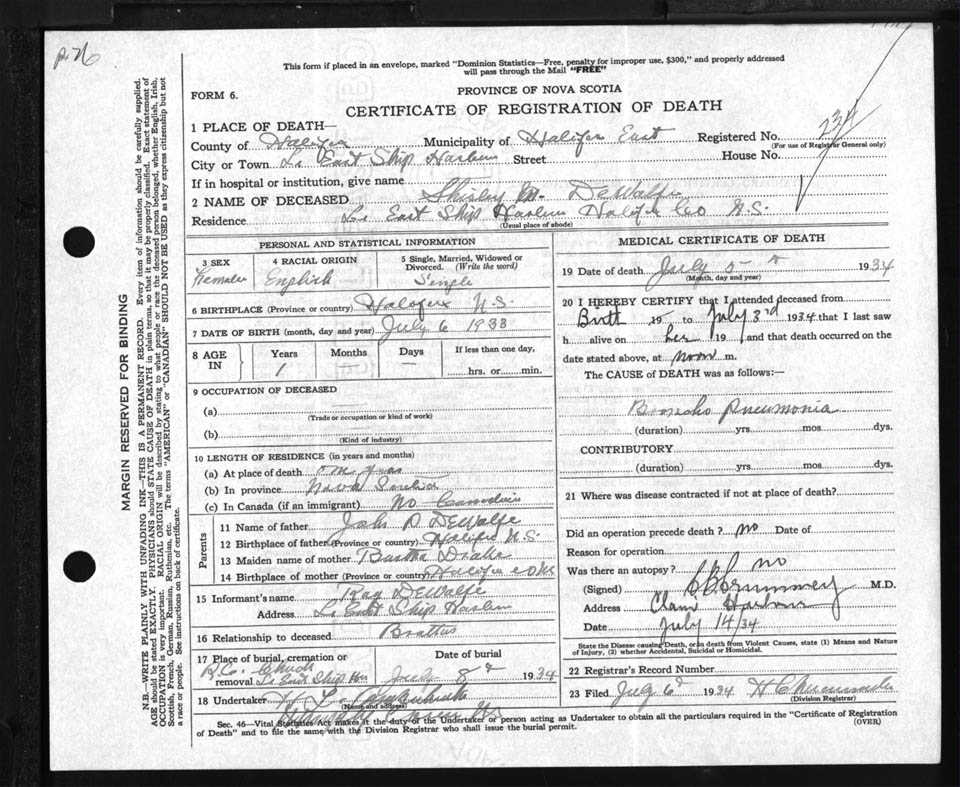 p. 26
This form if placed in an envelope, marked "Dominion Statistics—Free, penalty for improper use, $300," and properly addressed
will pass through the Mail "FREE"
FORM 6.
PROVINCE OF NOVA SCOTIA
CERTIFICATE OF REGISTRATION OF DEATH
1 PLACE OF DEATH—
County of Halifax Municipality of Halifax East Registered No. 234
(For use of Registrar General only)
City or Town L. East Ship Harbour Street House No.
If in hospital or institution, give name
2 NAME OF DECEASED Shirley M. DeWolfe
Residence L. East Ship Harbour Halifax Co N.S.
(Usual place of abode)
PERSONAL AND STATISTICAL INFORMATION
3 SEX
Female
4 RACIAL ORIGIN
English
5 Single, Married, Widowed or
Divorced. (Write the word)
Single
6 BIRTHPLACE (Province or country) Halifax N.S.
7 DATE OF BIRTH (month, day and year) July 6 1933
8 AGE IN
Years Months Days If less than one day,
1 — hrs. or min.
9 OCCUPATION OF DECEASED
(a)
(Trade or occupation or kind of work)
(b)
(Kind of industry)
10 LENGTH OF RESIDENCE (in years and months)
(a) At place of death
(b) In province Nova Scotia
(c) In Canada (if an immigrant) No Canadian
Parents
11 Name of father John D DeWolfe
12 Birthplace of father (Province or country) Halifax N.S.
13 Maiden name of mother
14 Birthplace of mother (Province or country) Halifax Co NS
15 Informant's name Ray DeWolfe
Address L. East Ship Harbour
16 Relationship to deceased
17 Place of burial, cremation or
removal R.C. Church L. East Ship Hbr
Date of burial
July 1934
18 Undertaker H L
(Name and address)
MEDICAL CERTIFICATE OF DEATH
19 Date of death July 5 1934
(Month, day and year)
20 I HEREBY CERTIFY that I attended deceased from
19 to July 3rd 1934 that I last saw
h alive on her 19 and that death occurred on the
date stated above, at noon m.
The CAUSE of DEATH was as follows:—
Broncho Pneumonia
(duration) yrs. mos. dys.
CONTRIBUTORY
(duration) yrs. mos. dys.
21 Where was disease contracted if not at place of death?
Did an operation precede death? no Date of
Reason for operation
Was there an autopsy? no
(Signed) M.D.
Address Clam Harbour
Date July 14/34
State the Disease causing Death, or in death from Violent Causes, state (1) Means and Nature
of Injury, (2) whether Accidental, Suicidal or Homicidal.
22 Registrar's Record Number
23 Filed July 6 1934
(Division Registrar)
Sec. 46—Vital Statistics Act makes it the duty of the Undertaker or person acting as Undertaker to obtain all the particulars required in the "Certificate of Registration
of Death" and to file the same with the Division Registrar who shall issue the burial permit.
(OVER)
MARGIN RESERVED FOR BINDING
N.B.—WRITE PLAINLY WITH UNFADING INK—THIS IS A PERMANENT RECORD. Every item of information should be carefully supplied.
AGE should be stated EXACTLY. PHYSICIANS should STATE CAUSE OF DEATH in plain terms, so that it may be properly classified. Exact statement of
OCCUPATION is very important. RACIAL ORIGIN will be described by stating to what people or race the deceased person belonged, whether English, Irish,
Scottish, French, German, Russian, Ruthenian, etc. The terms "AMERICAN" or "CANADIAN" SHOULD NOT BE USED as they express citizenship but not
a race or people. See instructions on back of certificate.